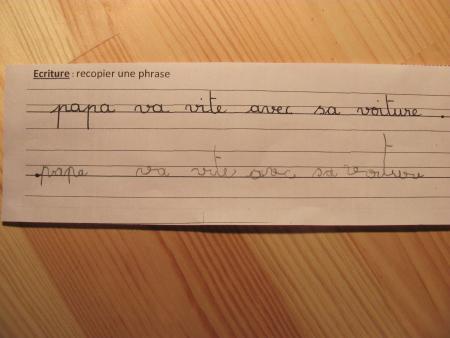 Ecriture : recopier une phrase
papa va vite avec sa voiture .
. papa va vite avec sa voiture